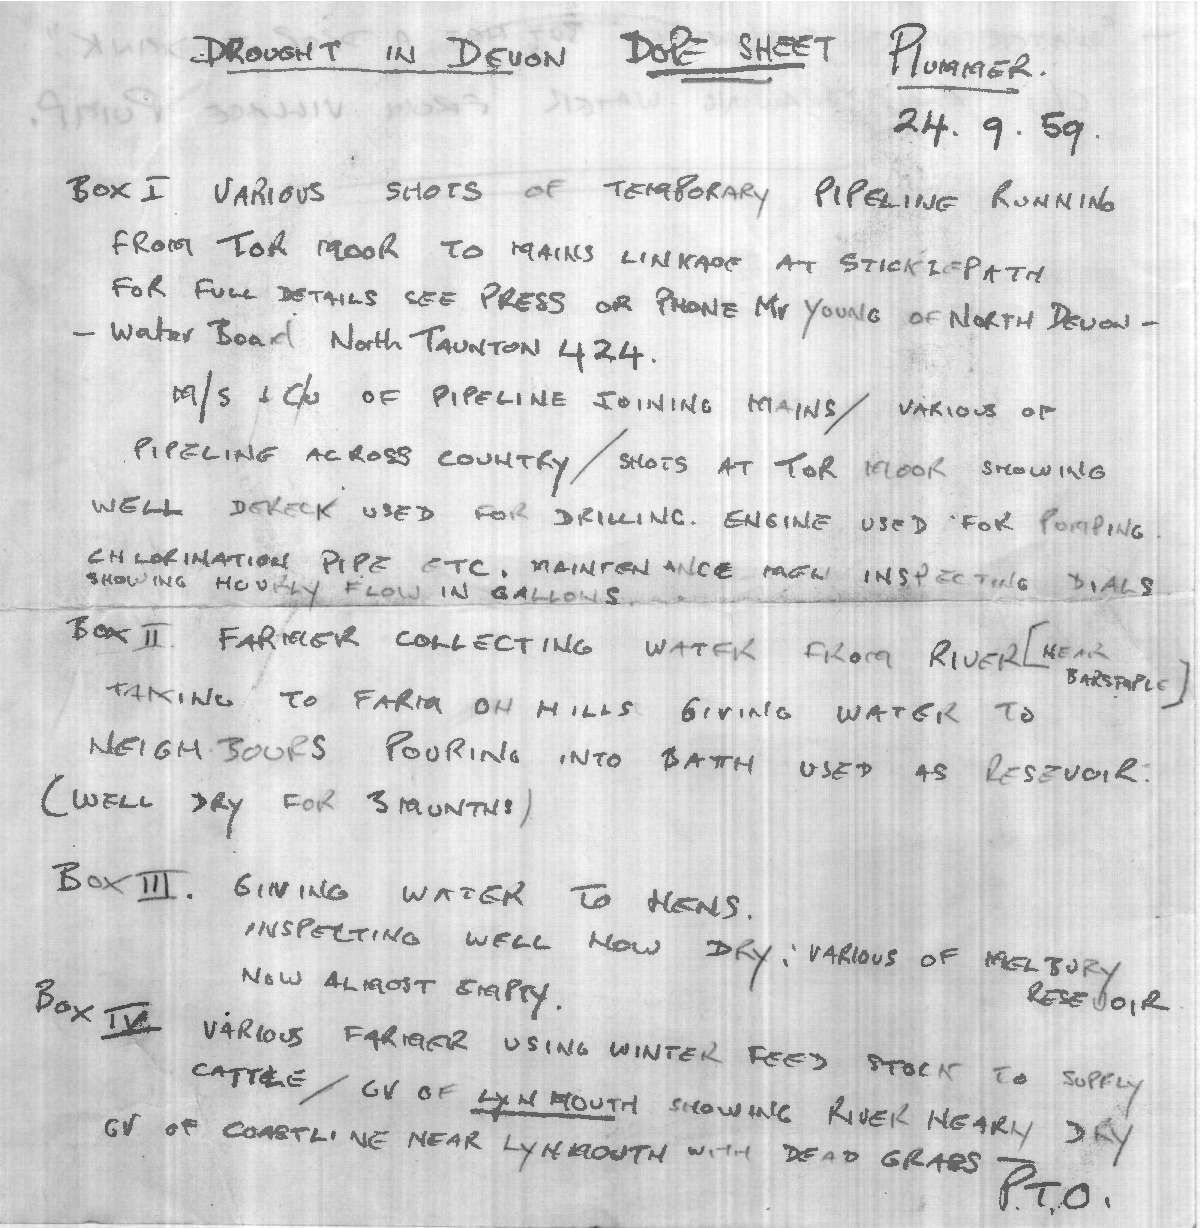 DROUGHT IN DEVON DOPE SHEET PLUMMER.
24. 9. 59.
BOX I VARIOUS SHOTS OF TEMPORARY PIPELINE RUNNING
FROM TOR MOOR TO MAINS LINKAGE AT STICKLEPATH
FOR FULL DETAILS SEE PRESS OR PHONE Mr YOUNG OF NORTH DEVON -
- Water Board North TAUNTON 424.
M/S & C/U OF PIPELINE JOINING MAINS / VARIOUS OF
PIPELINE ACROSS COUNTRY / SHOTS AT TOR MOOR SHOWING
WELL DERECK USED FOR DRILLING. ENGINE USED FOR POMPING.
CHLORINATION PIPE ETC. MAINTENANCE MEN INSPECTING DIALS
SHOWING HOURLY FLOW IN GALLONS.
BOX II. FARMER COLLECTING WATER FROM RIVER [NEAR
BARSTAPLE]
TAKING TO FARM ON HILLS GIVING WATER TO
NEIGHBOURS POURING INTO BATH USED AS RESEVOIR.
(WELL DRY FOR 3 MUNTHS)
BOX III. GIVING WATER TO HENS.
INSPECTING WELL NOW DRY. VARIOUS OF MELBURY
RESEVOIR
NOW ALMOST EMPTY.
BOX IV VARIOUS FARMER USING WINTER FEED STOCK TO SUPPLY
CATTLE / GV OF LYNMOUTH SHOWING RIVER NEARLY DRY
GV OF COASTLINE NEAR LYNMOUTH WITH DEAD GRASS -
P.T.O.